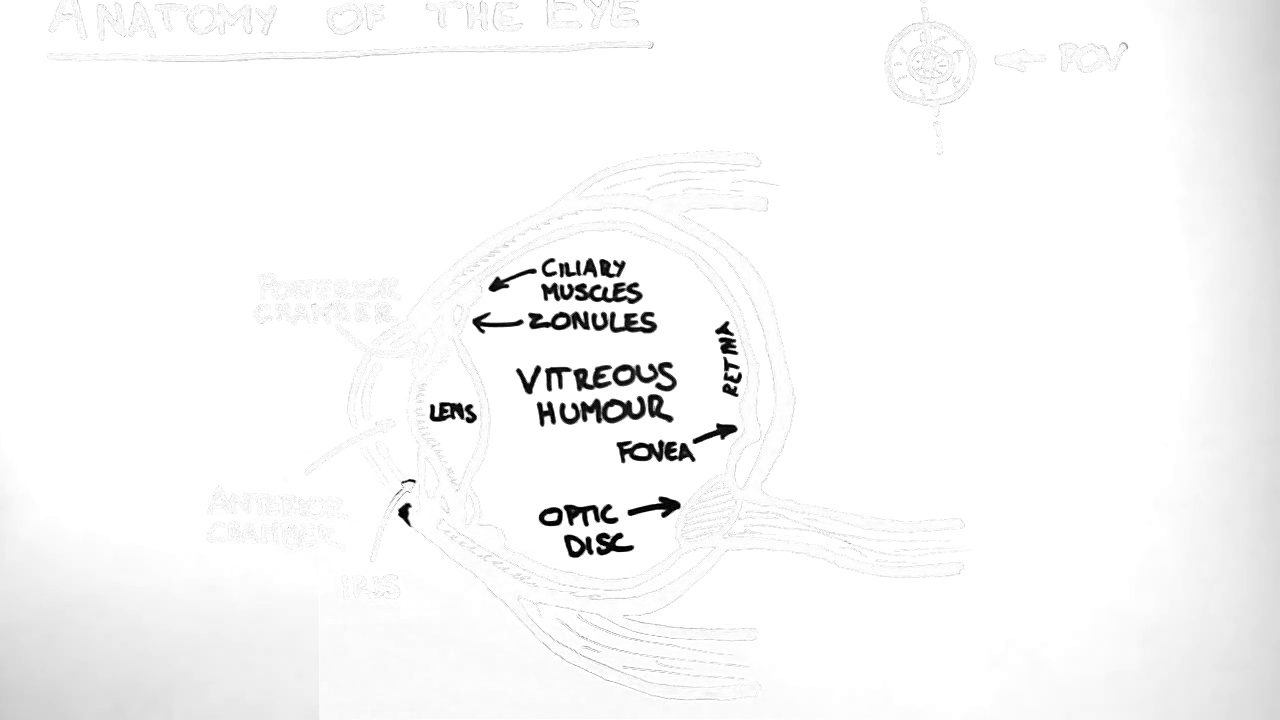 ANATOMY OF THE EYE
POV
POSTERIOR
CHAMBER
CILIARY
MUSCLES
ZONULES
RETINA
VITREOUS
HUMOUR
LENS
FOVEA
ANTERIOR
CHAMBER
OPTIC
DISC
IRIS